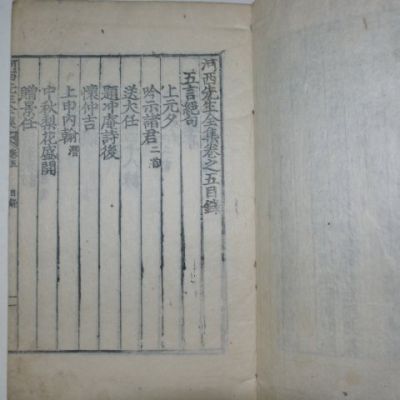 河西先生全集卷之五目錄
五言絕句
上元夕
吟示諸君 二首
送大任
題冲庵詩後
懷仲吉
上申內翰 潛
中秋梨花盛開
贈景任